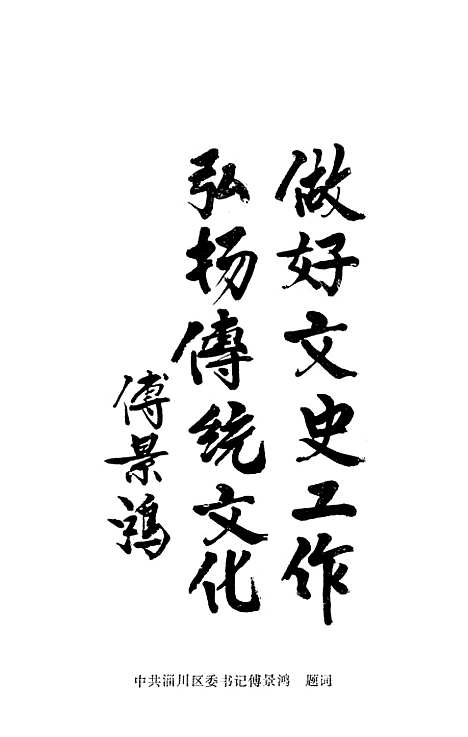 做好文史工作
弘扬傳统文化
傅景鸿
中共淄川区委书记傅景鸿　题词